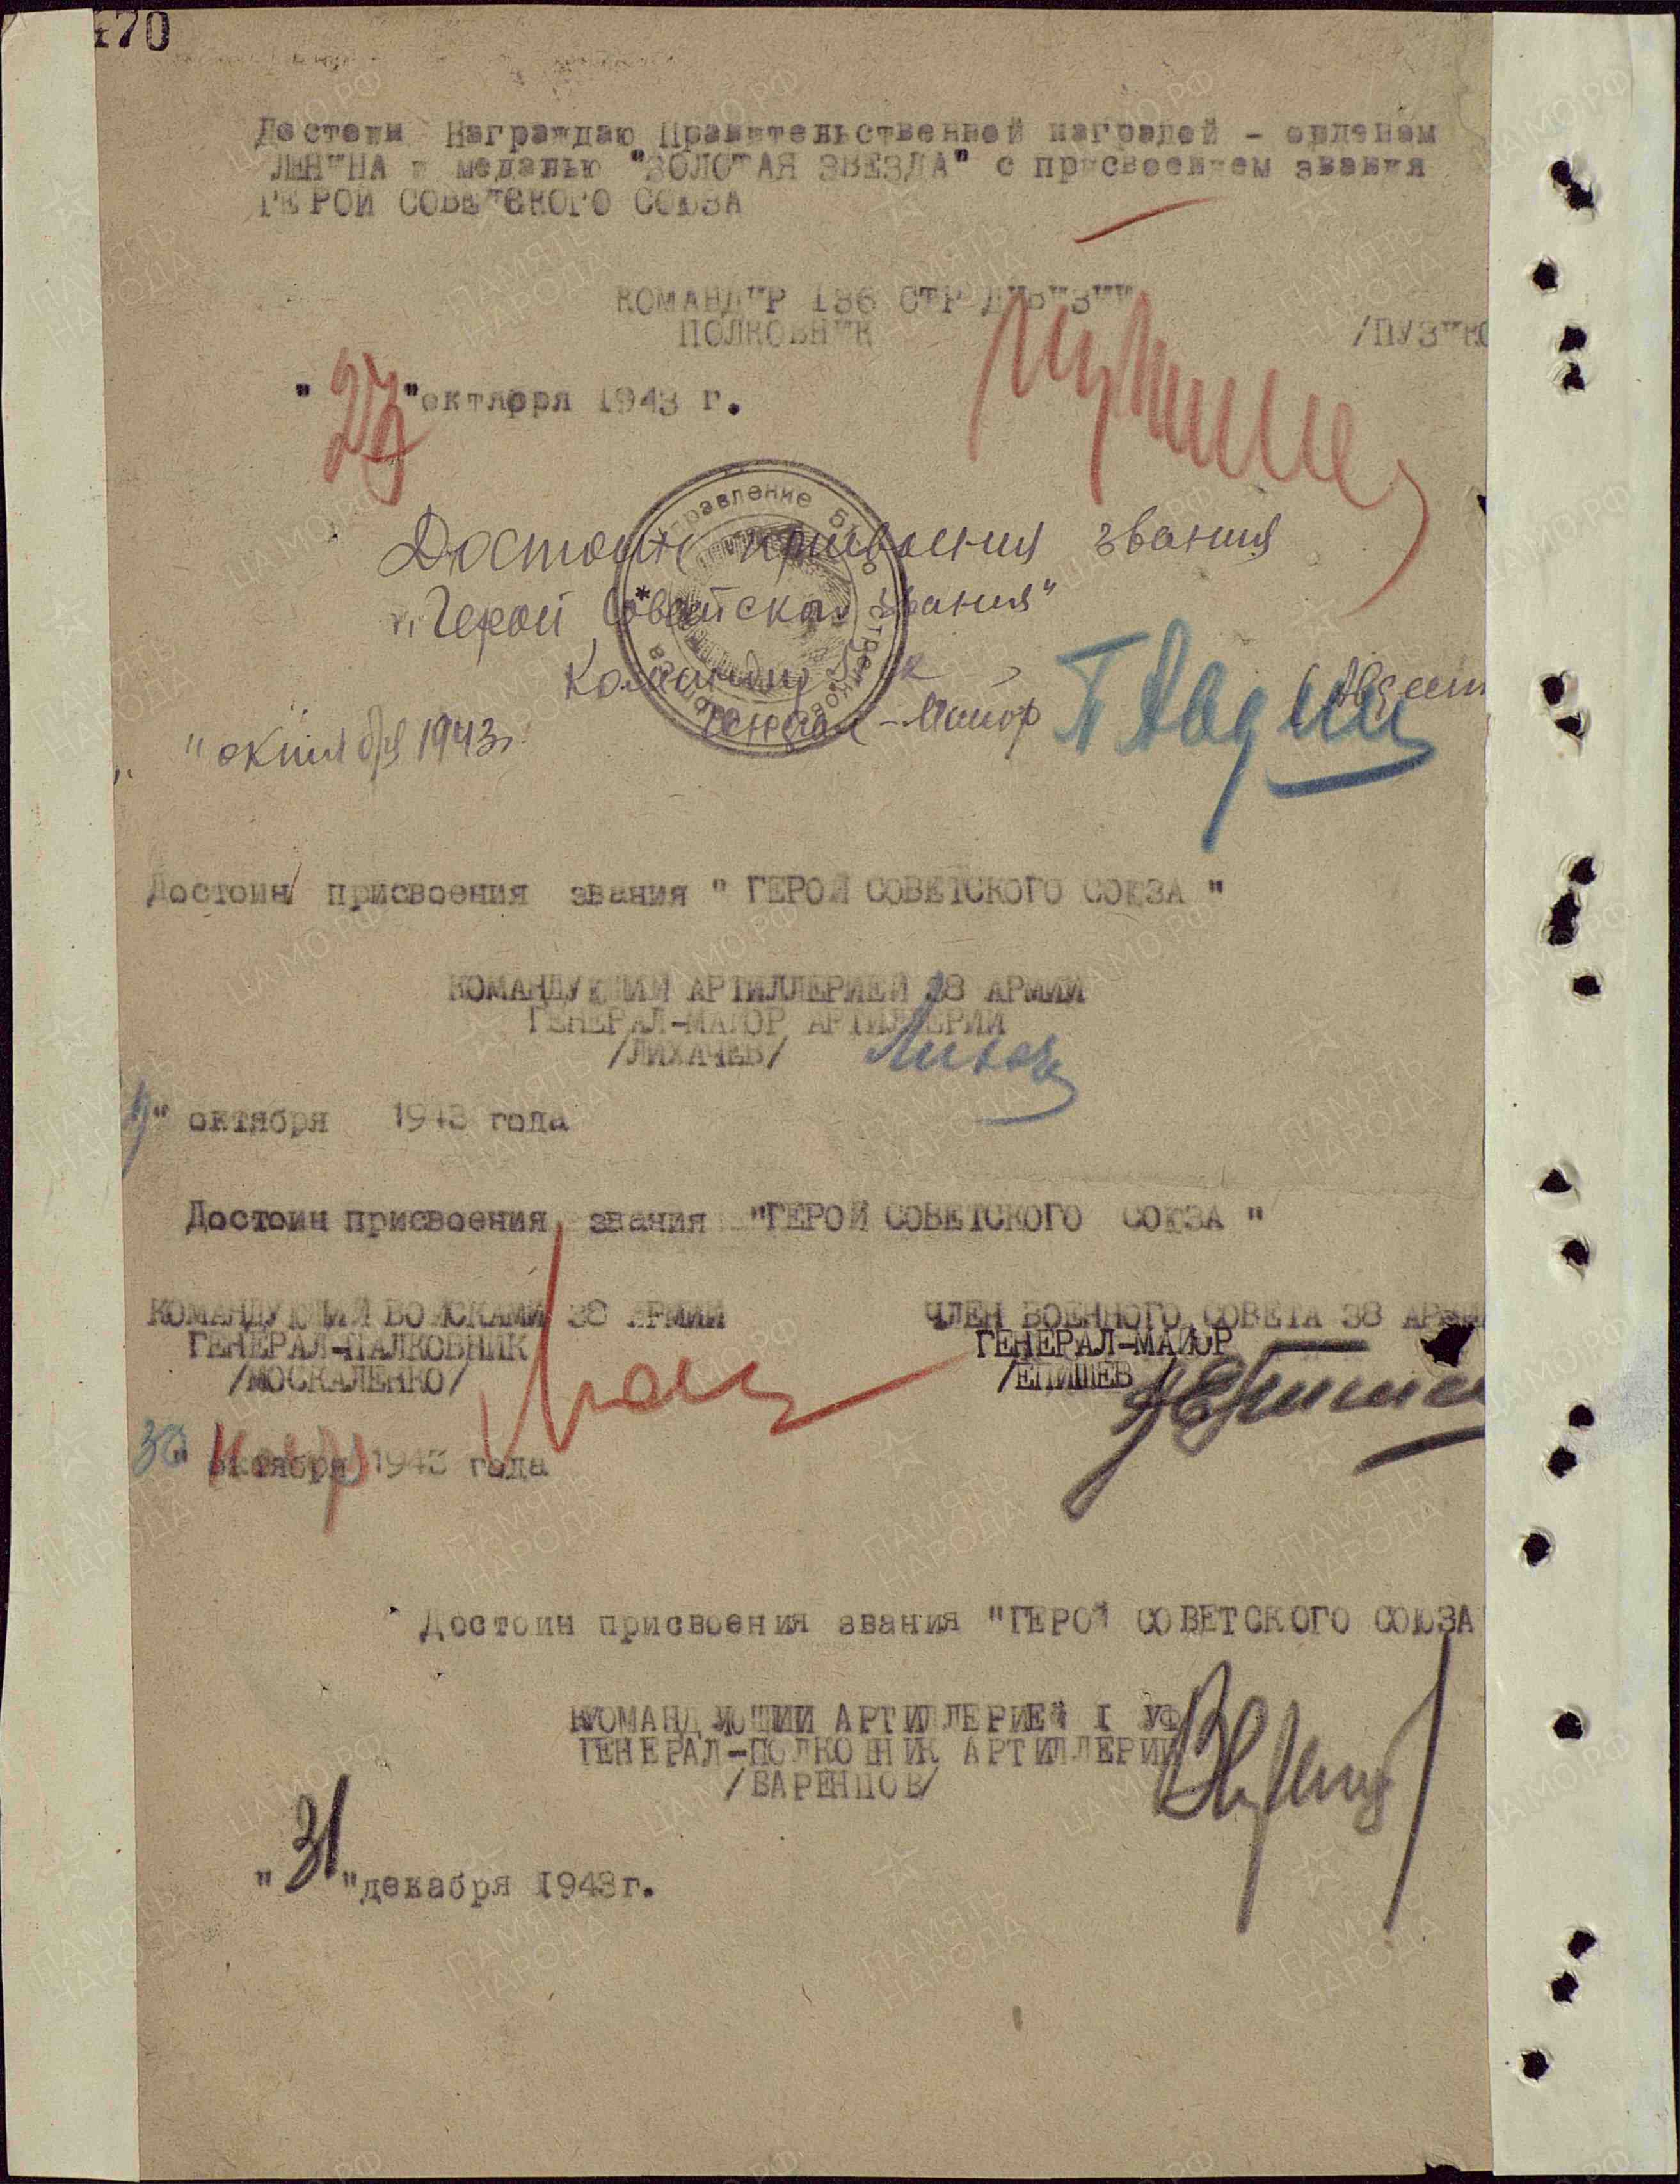 470
Достоин Награждаю Правительственной наградой - орденом
ЛЕНИНА и медалью "ЗОЛОТАЯ ЗВЕЗДА" с присвоением звания
ГЕРОЙ СОВЕТСКОГО СОЮЗА
КОМАНДИР 136 СТР ДИВИЗИИ
ПОЛКОВНИК /ПУЗИКО
" 27 "октября 1943 г.
Достоин присвоения звания
"Герой Советского звания"
Командир ск
Генерал-Майор
" октября 1943г
Достоин присвоения звания " ГЕРОЙ СОВЕТСКОГО СОЮЗА "
КОМАНДУЮЩИЙ АРТИЛЛЕРИЕЙ 38 АРМИИ
ГЕНЕРАЛ-МАЙОР АРТИЛЛЕРИИ
/ЛИХАЧЕВ/
" октября 1943 года
Достоин присвоения звания "ГЕРОЙ СОВЕТСКОГО СОЮЗА "
КОМАНДУЮЩИЙ ВОЙСКАМИ 38 АРМИИ
ГЕНЕРАЛ-ПАЛКОВНИК
/МОСКАЛЕНКО/
ЧЛЕН ВОЕННОГО СОВЕТА 38 АРМИ
ГЕНЕРАЛ-МАЙОР
/ЕПИШЕВ/
30" октября 1943 года
Достоин присвоения звания "ГЕРОЙ СОВЕТСКОГО СОЮЗА
КОМАНДУЮЩИЙ АРТИЛЛЕРИЕЙ I УФ
ГЕНЕРАЛ-ПОЛКОВНИК АРТИЛЛЕРИИ
/ВАРЕНЦОВ/
" 31 "декабря 1943г.